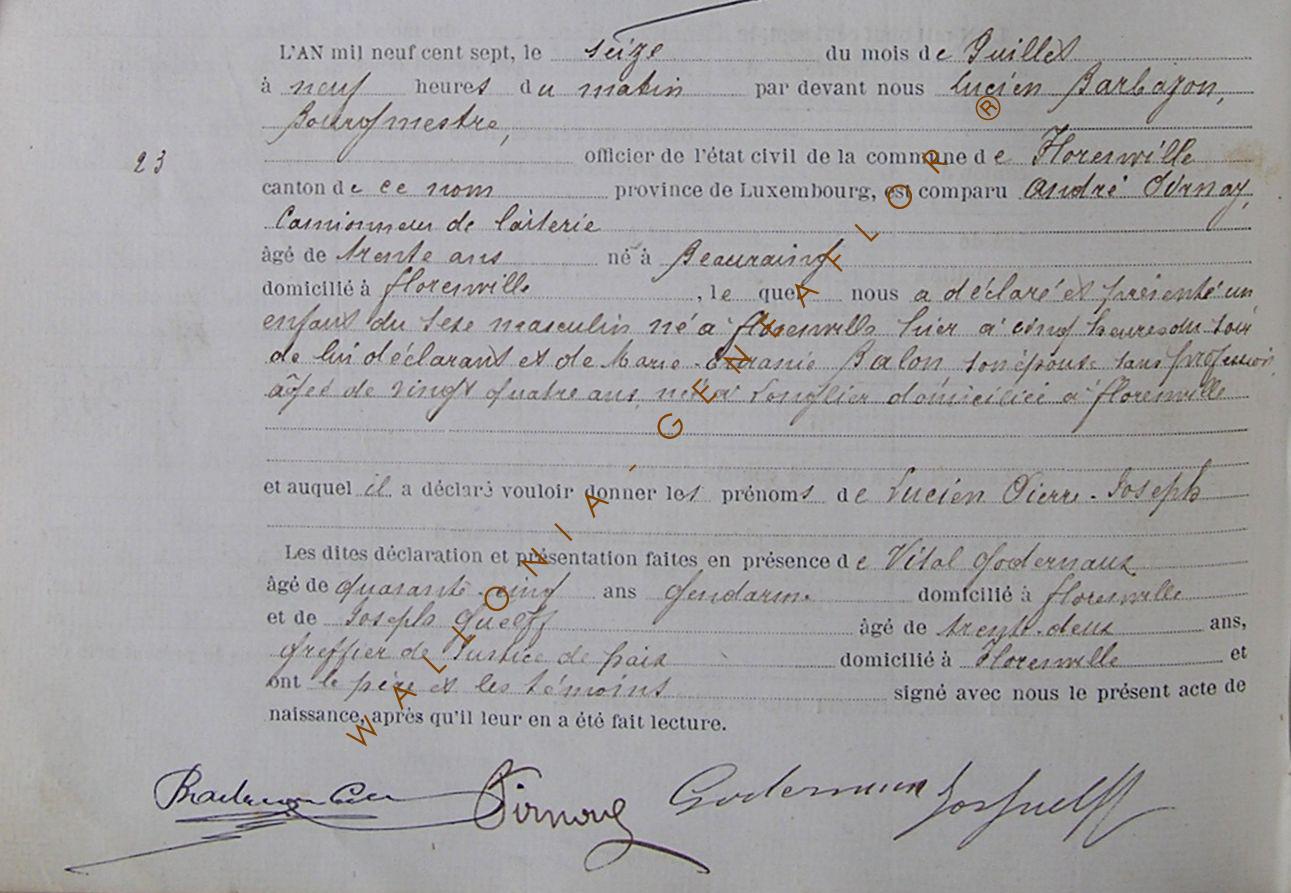 L'AN mil neuf cent sept, le seize du mois de Juillet
à neuf heures du matin par devant nous Lucien Barbazon,
Bourgmestre,
23 officier de l'état civil de la commune de Florenville
canton de ce nom province de Luxembourg, est comparu André Pirnay,
Camionneur de laiterie
âgé de trente ans né à Beauraing
domicilié à florenville, le quel nous a déclaré et présenté un
enfant du sexe masculin né à florenville hier à cinq heures du soir
de lui déclarant et de Marie Balon son épouse sans profession,
âgée de vingt quatre ans, née à Longlier domiciliée à florenville
et auquel il a déclaré vouloir donner les prénoms de Lucien Pierre-Joseph
Les dites déclaration et présentation faites en présence de Vital Godernaux
âgé de quarante-cinq ans gendarme domicilié à florenville
et de Joseph Guelff âgé de trente-deux ans,
greffier de Justice de paix domicilié à Florenville et
ont le père et les témoins signé avec nous le présent acte de
naissance, après qu'il leur en a été fait lecture.
Pirnay Godernaux Jos Guelff
WALLONIA - GENEAFLOR ®